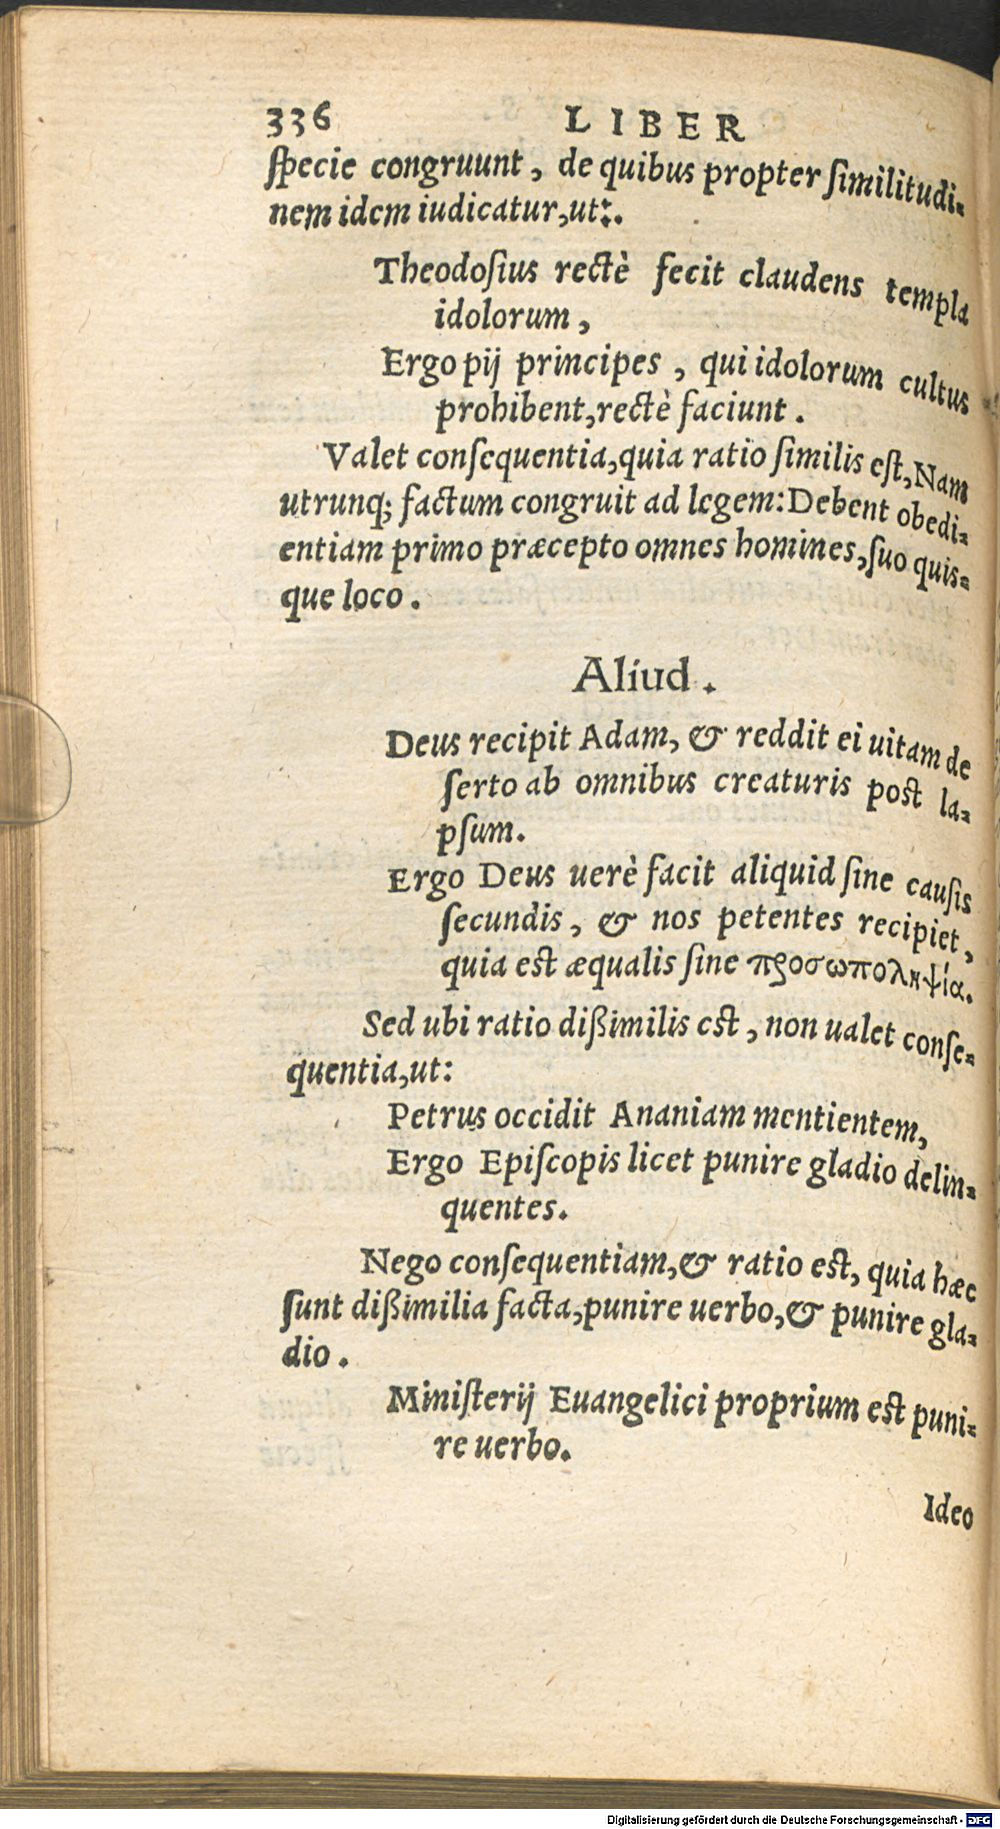 336 LIBER
ſpecie congruunt, de quibus propter ſimilitudi-
nem idem iudicatur, ut:.
Theodoſius rectè fecit claudens templa
idolorum,
Ergo pij principes, qui idolorum cultus
prohibent, rectè faciunt.
Valet conſequentia, quia ratio ſimilis eſt, Nam
utrunq; factum congruit ad legem: Debent obedi-
entiam primo præcepto omnes homines, ſuo quis-
que loco.
Aliud.
Deus recipit Adam, & reddit ei uitam de
ſerto ab omnibus creaturis post la-
pſum.
Ergo Deus uerè facit aliquid ſine cauſis
ſecundis, & nos petentes recipiet,
quia est æqualis ſine προσωποληψία.
Sed ubi ratio dißimilis est, non ualet conſe-
quentia, ut:
Petrus occidit Ananiam mentientem,
Ergo Epiſcopis licet punire gladio delin-
quentes.
Nego conſequentiam, & ratio est, quia hæc
ſunt dißimilia facta, punire uerbo, & punire gla-
dio.
Miniſterij Euangelici proprium est puni-
re uerbo.
Ideo
Digitalisierung gefördert durch die Deutsche Forschungsgemeinschaft - DFG